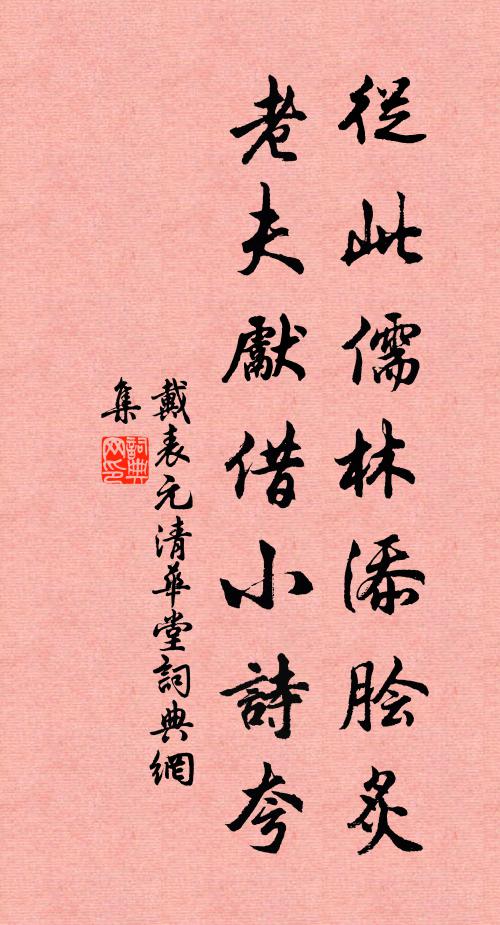 從此儒林添膾炙
老夫獻借小詩夸
戴表元清華堂詞典網
集
詞典网印